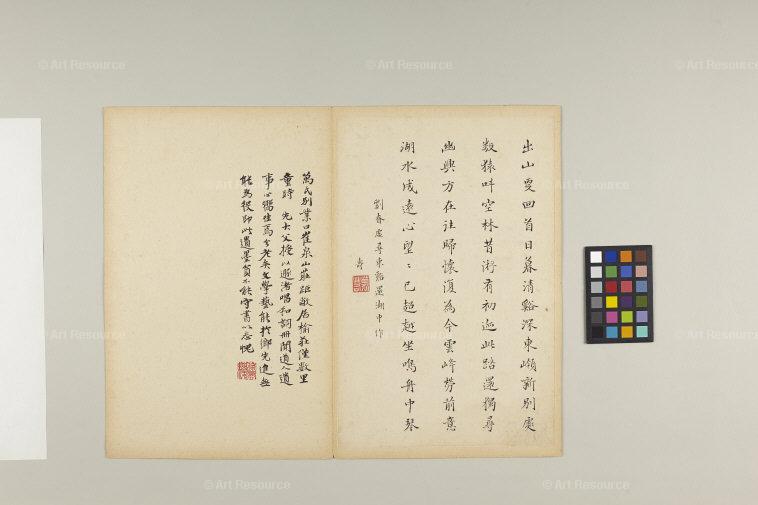 © Art Resource
© Art Resource
© Art Resource
出山更回首日暮清谿深東嶺新別處
數猿叫空林昔游有初迹此路還獨尋
幽興方在往歸懷復為今雲峰勞前意
湖水成遠心望〻已超越坐鳴舟中琴
劉春虛尋東谿還湖中作
萬氏別業曰崔泉山莊距敝居榆莊僅數里
童時 先大父授以遊渚唱和詞冊聞道人遺
事心嚮往焉今老矣文學藝能於鄉先進無
能為役即此遺墨不能守書以志愧
© Art Resource
© Art Resource
© Art Resource
© Art Resource
© Art Resource
© Art Resource
© Art Resource
© Art Resource